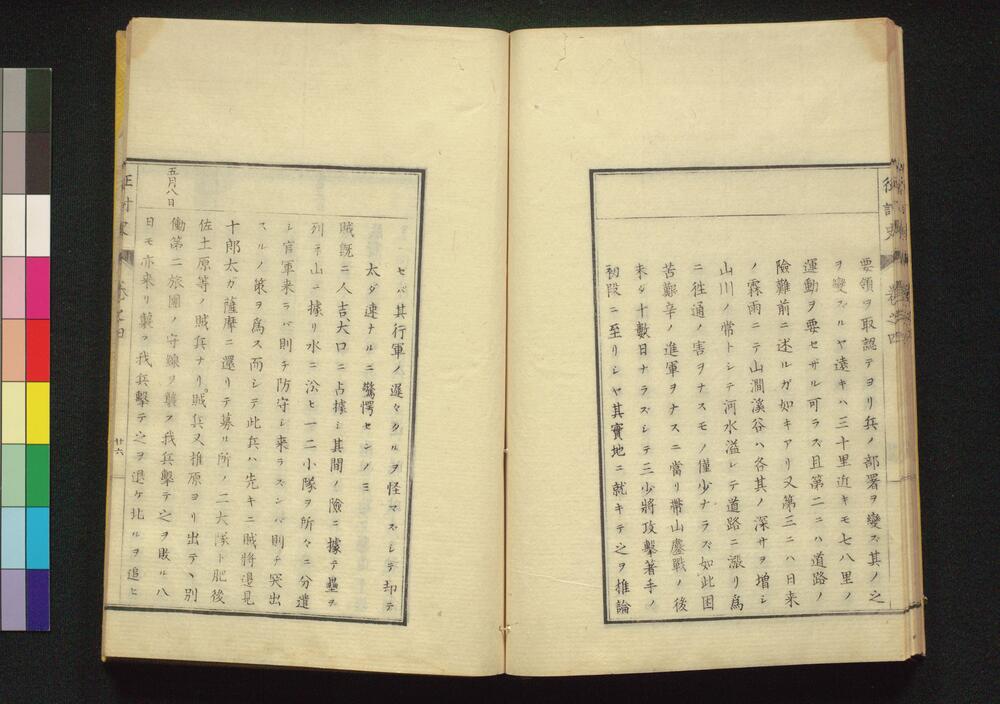 要領ヲ取認テヨリ兵ノ部署ヲ變ズ其ノ之
ヲ變ズルヤ遠キハ三十里近キモ七八里ノ
運動ヲ要セザル可ラズ且第二ニハ道路ノ
險難前ニ述ルガ如キアリ又第三ニハ日来
ノ霖雨ニテ山澗溪谷ハ各其ノ深サヲ増シ
山川ノ常トシテ河水溢レテ道路ニ漲リ爲
ニ徃通ノ害ヲナスモノ僅少ナラズ如此困
苦艱辛ノ進軍ヲナスニ當リ帶山鏖戰ノ後
未ダ十數日ナラズシテ三少將攻擊著手ノ
初段ニ至リシヤ其實地ニ就キテ之ヲ推論
セバ其行軍ノ遲々タルヲ怪マズシテ却テ
太ダ速ナルニ驚愕センノミ
賊既ニ人吉、大口ニ占據シ其間ノ險ニ據テ壘ヲ
列子山ニ據リ水ニ㳂ヒ一二小隊ヲ所々ニ分遣
シ官軍来ラバ則チ防守シ来ラズンバ則チ突出
スルノ策ヲ爲ス而シテ此兵ハ先キニ賊將邉見
十郎太ガ薩摩ニ還リテ募ル所ノ二大隊ト肥後
佐土原等ノ賊兵ナリ。賊兵又椎原ヨリ出テヽ別
五月八日
働第二旅團ノ守線ヲ襲フ我兵擊テ之ヲ敗ル八
日モ亦来リ襲フ我兵擊テ之ヲ退ケ北ルヲ追ヒ
征討史
卷之四
廿六